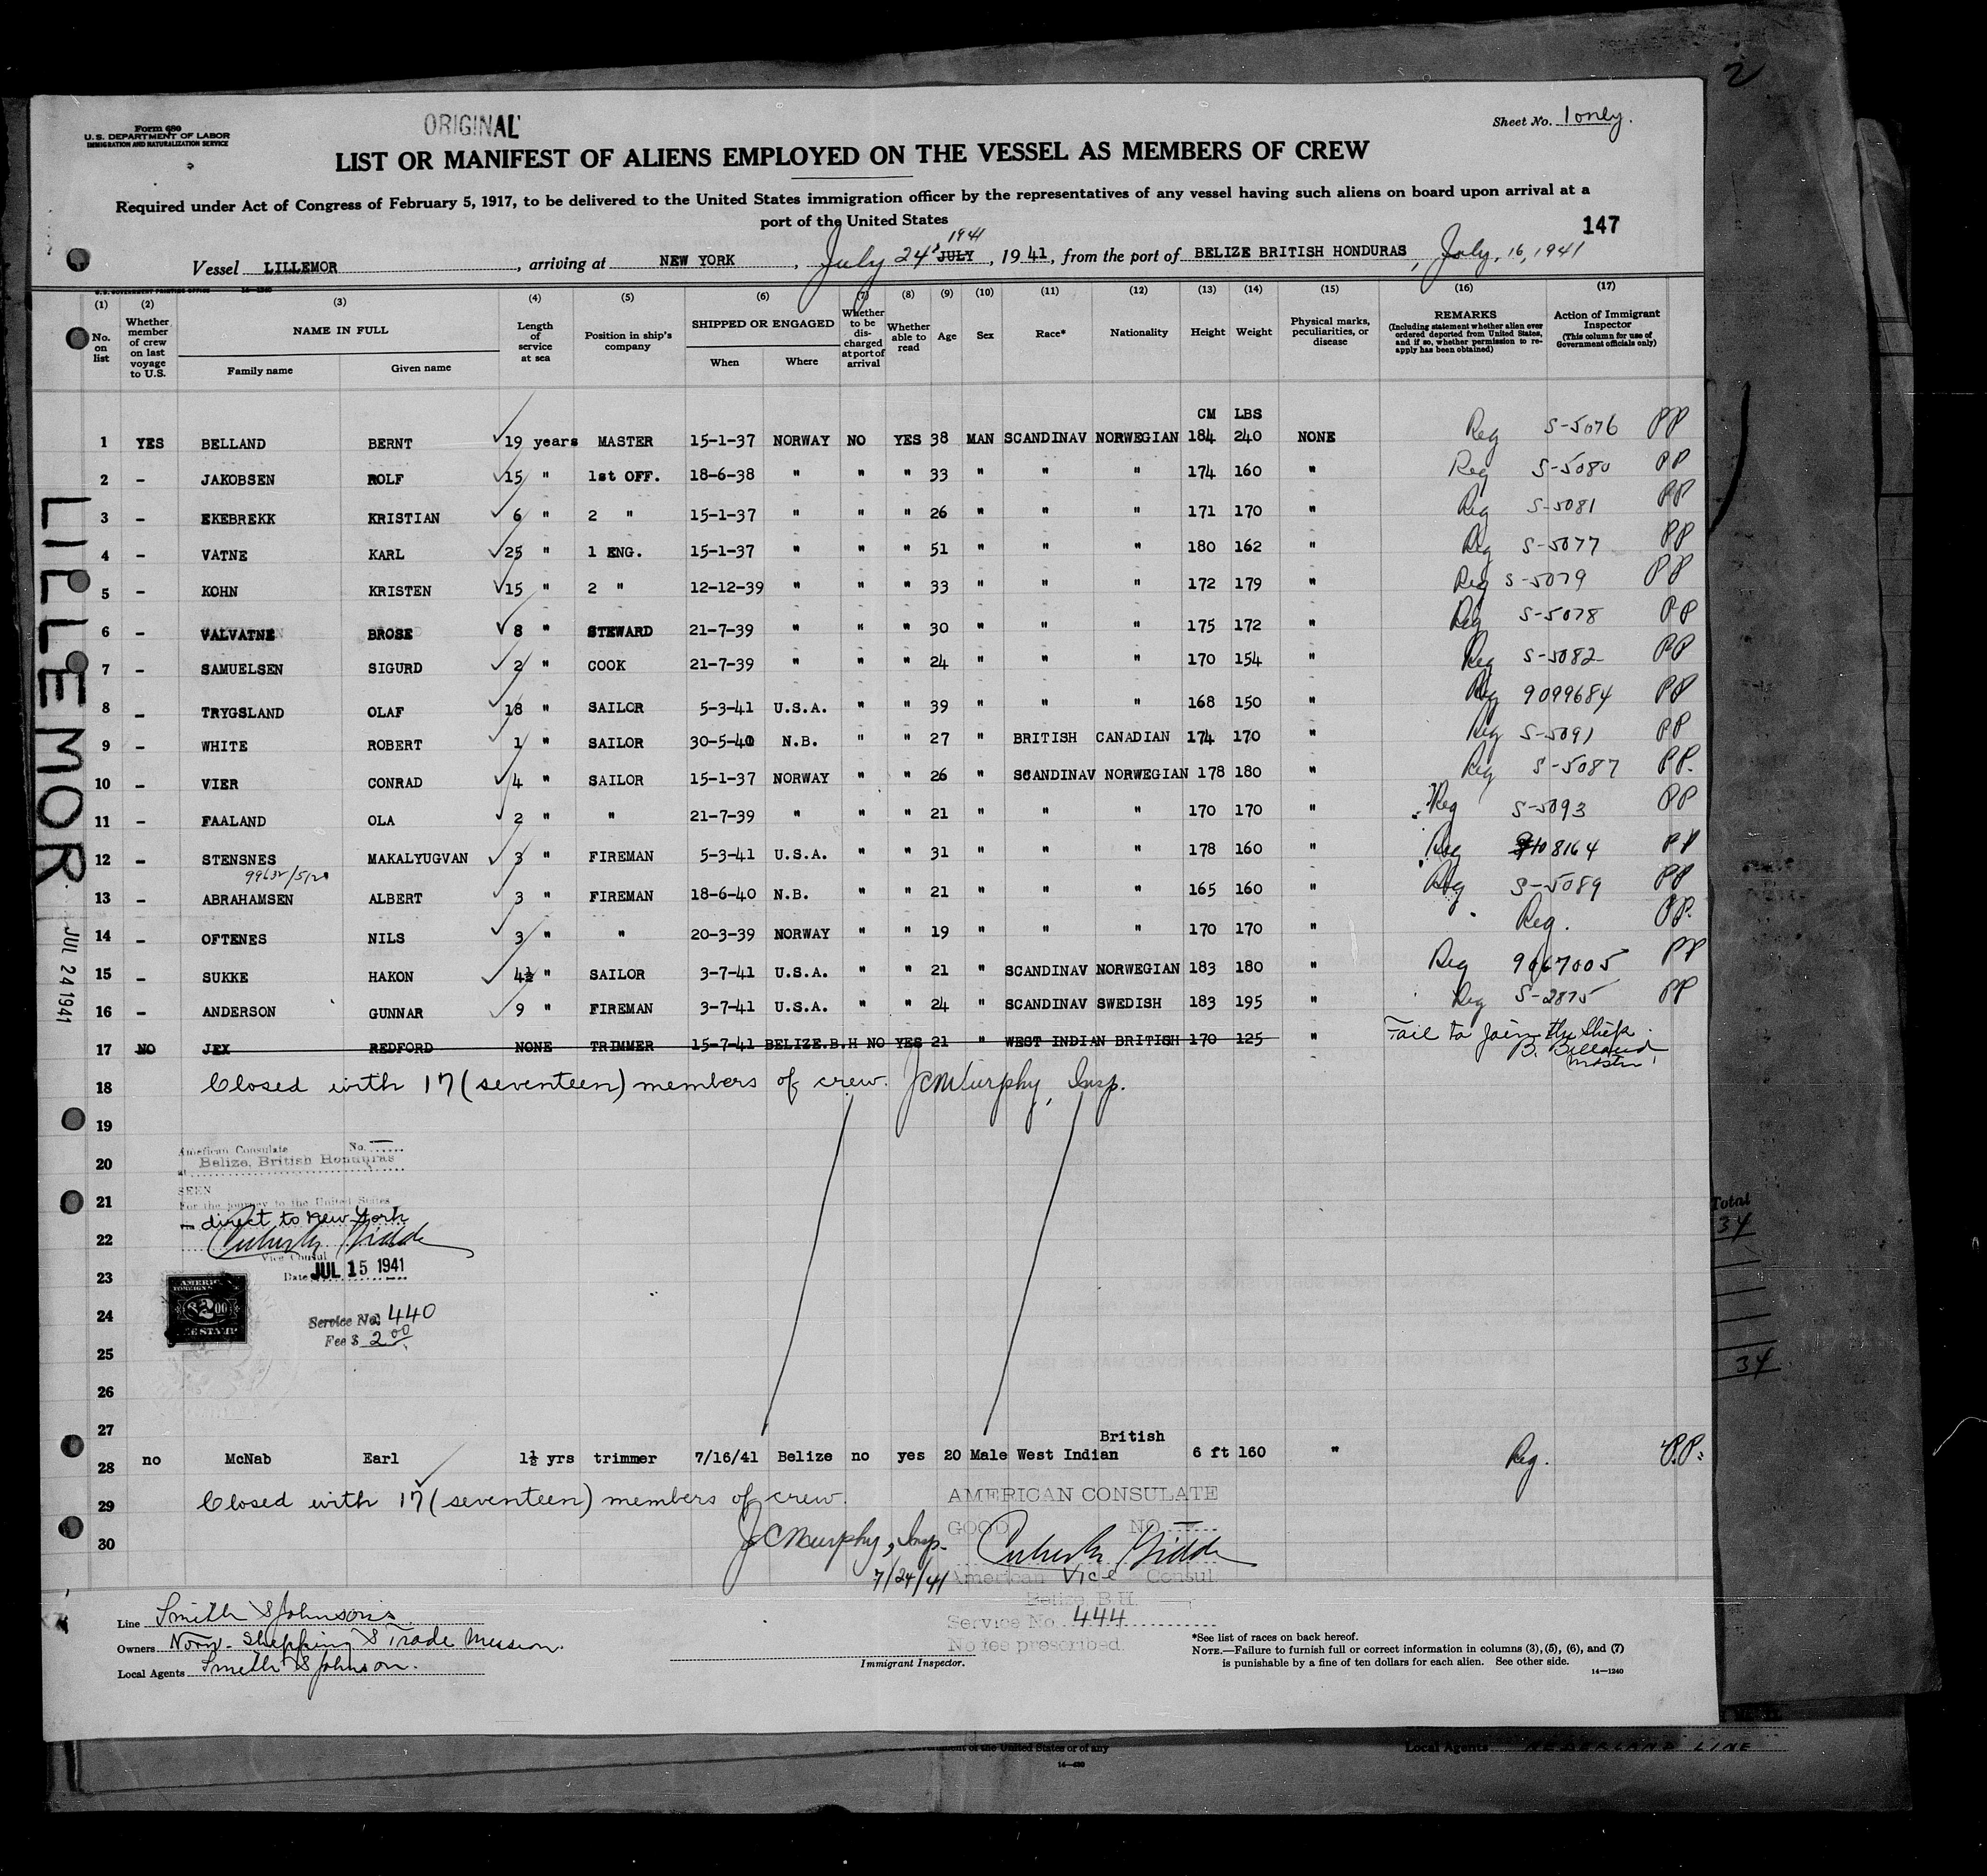 2
Form 680
U. S. DEPARTMENT OF LABOR
IMMIGRATION AND NATURALIZATION SERVICE
ORIGINAL
Sheet No. 1 only.
LIST OR MANIFEST OF ALIENS EMPLOYED ON THE VESSEL AS MEMBERS OF CREW
Required under Act of Congress of February 5, 1917, to be delivered to the United States immigration officer by the representatives of any vessel having such aliens on board upon arrival at a
port of the United States
147
1941
Vessel LILLEMOR, arriving at NEW YORK, July 24 JULY, 1941, from the port of BELIZE BRITISH HONDURAS, July, 16, 1941
(1) (2) (3) (4) (5) (6) (7) (8) (9) (10) (11) (12) (13) (14) (15) (16) (17)
No. on list
Whether member of crew on last voyage to U.S.
NAME IN FULL
Family name
Given name
Length of service at sea
Position in ship's company
SHIPPED OR ENGAGED
When
Where
Whether to be discharged at port of arrival
Whether able to read
Age
Sex
Race*
Nationality
Height
Weight
Physical marks, peculiarities, or disease
REMARKS
(Including statement whether alien ever ordered deported from United States, and if so, whether permission to reapply has been obtained)
Action of Immigrant Inspector
(This column for use of Government officials only)
CM LBS
1 YES BELLAND BERNT 19 years MASTER 15-1-37 NORWAY NO YES 38 MAN SCANDINAV NORWEGIAN 184 240 NONE Reg S-5076 PP
2 - JAKOBSEN ROLF 15 " 1st OFF. 18-6-38 " " " 33 " " " 174 160 " Reg S-5080 PP
3 - EKEBREKK KRISTIAN 6 " 2 " 15-1-37 " " " 26 " " " 171 170 " Reg S-5081 PP
4 - VATNE KARL 25 " 1 ENG. 15-1-37 " " " 51 " " " 180 162 " Reg S-5077 PP
5 - KOHN KRISTEN 15 " 2 " 12-12-39 " " " 33 " " " 172 179 " Reg S-5079 PP
6 - VALVATNE BROSE 8 " STEWARD 21-7-39 " " " 30 " " " 175 172 " Reg S-5078 PP
7 - SAMUELSEN SIGURD 2 " COOK 21-7-39 " " " 24 " " " 170 154 " Reg S-5082 PP
8 - TRYGSLAND OLAF 18 " SAILOR 5-3-41 U.S.A. " " 39 " " " 168 150 " Reg 9099684 PP
9 - WHITE ROBERT 1 " SAILOR 30-5-40 N.B. " " 27 " BRITISH CANADIAN 174 170 " Reg S-5091 PP
10 - VIER CONRAD 4 " SAILOR 15-1-37 NORWAY " " 26 " SCANDINAV NORWEGIAN 178 180 " Reg S-5087 PP.
11 - FAALAND OLA 2 " " 21-7-39 " " " 21 " " " 170 170 " Reg S-5093 PP
12 - STENSNES MAKALYUGVAN 3 " FIREMAN 5-3-41 U.S.A. " " 31 " " " 178 160 " Reg 9108164 PP
13 - ABRAHAMSEN ALBERT 3 " FIREMAN 18-6-40 N.B. " " 21 " " " 165 160 " Reg S-5089 PP
14 - OFTENES NILS 3 " " 20-3-39 NORWAY " " 19 " " " 170 170 " Reg. PP.
15 - SUKKE HAKON 4½ " SAILOR 3-7-41 U.S.A. " " 21 " SCANDINAV NORWEGIAN 183 180 " Reg 9067005 PP
16 - ANDERSON GUNNAR 9 " FIREMAN 3-7-41 U.S.A. " " 24 " SCANDINAV SWEDISH 183 195 " Reg S-2875 PP
17 NO JEX REDFORD NONE TRIMMER 15-7-41 BELIZE.B.H NO YES 21 " WEST INDIAN BRITISH 170 125 " Fail to join the ship.
B. Belland
Master
18 Closed with 17 (seventeen) members of crew. JCMurphy, Insp.
19
20
21
22
23
24
25
26
27
American Consulate No. —
at Belize, British Honduras
SEEN
For the journey to the United States
direct to New York
Vice Consul
Date JUL 15 1941
AMERICAN
FOREIGN
$2.00
FEE STAMP
Service No. 440
Fee $ 2.00
British
28 no McNab Earl 1½ yrs trimmer 7/16/41 Belize no yes 20 Male West Indian 6 ft 160 " Reg. P.P.
29 Closed with 17 (seventeen) members of crew.
30 JCMurphy, Insp.
7/24/41
AMERICAN CONSULATE
GOOD NO. —
American Vice Consul.
Belize, B.H.
Service No. 444
No fee prescribed
Line Smith & Johnsons.
Owners Norw. Shipping & Trade Mission.
Local Agents Smith & Johnson.
Immigrant Inspector.
*See list of races on back hereof.
NOTE.—Failure to furnish full or correct information in columns (3), (5), (6), and (7)
is punishable by a fine of ten dollars for each alien. See other side.
14—1240
LILLEMOR
JUL 24 1941
Total
34
34
of the United States or of any
Local Agents NEDERLAND LINE